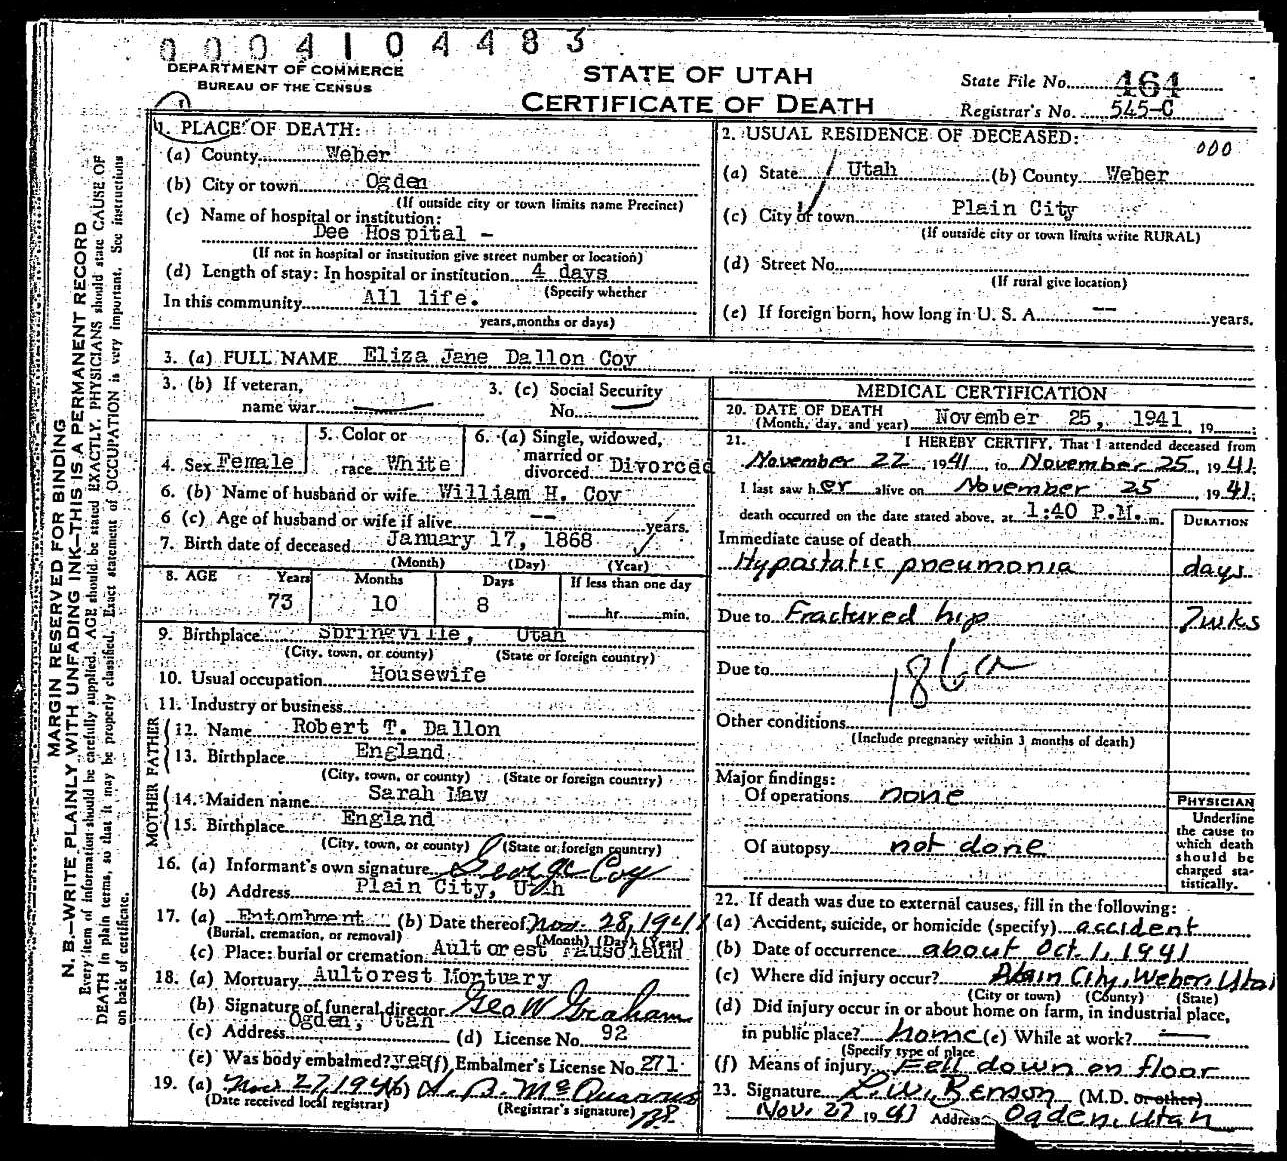 0004104483
DEPARTMENT OF COMMERCE
BUREAU OF THE CENSUS
STATE OF UTAH
CERTIFICATE OF DEATH
State File No. 464
Registrar's No. 545-C
1. PLACE OF DEATH:
(a) County Weber
(b) City or town Ogden
(If outside city or town limits name Precinct)
(c) Name of hospital or institution:
Dee Hospital -
(If not in hospital or institution give street number or location)
(d) Length of stay: In hospital or institution 4 days
(Specify whether
In this community All life.
years, months or days)
2. USUAL RESIDENCE OF DECEASED:
000
(a) State Utah (b) County Weber
(c) City or town Plain City
(If outside city or town limits write RURAL)
(d) Street No.
(If rural give location)
(e) If foreign born, how long in U. S. A. -- years.
3. (a) FULL NAME Eliza Jane Dallon Coy
3. (b) If veteran,
name war
3. (c) Social Security
No.
4. Sex Female
5. Color or
race White
6. (a) Single, widowed,
married or
divorced Divorced
6. (b) Name of husband or wife William H. Coy
6 (c) Age of husband or wife if alive -- years.
7. Birth date of deceased January 17, 1868
(Month) (Day) (Year)
8. AGE Years Months Days If less than one day
73 10 8 hr. min.
9. Birthplace Springville, Utah
(City, town, or county) (State or foreign country)
10. Usual occupation Housewife
11. Industry or business
FATHER
12. Name Robert T. Dallon
13. Birthplace England
(City, town, or county) (State or foreign country)
MOTHER
14. Maiden name Sarah Maw
15. Birthplace England
(City, town, or county) (State or foreign country)
16. (a) Informant's own signature George Coy
(b) Address Plain City, Utah
17. (a) Entombment (b) Date thereof Nov. 28, 1941
(Burial, cremation, or removal) (Month) (Day) (Year)
(c) Place: burial or cremation Aultorest Mausoleum
18. (a) Mortuary Aultorest Mortuary
(b) Signature of funeral director Geo W Graham
(c) Address Ogden, Utah (d) License No. 92
(e) Was body embalmed? yes (f) Embalmer's License No. 271
19. (a) Nov 27, 1941 (b)
(Date received local registrar) (Registrar's signature)
MEDICAL CERTIFICATION
20. DATE OF DEATH
(Month, day, and year) November 25, 1941 , 19
21. I HEREBY CERTIFY, That I attended deceased from
November 22, 1941, to November 25, 1941;
I last saw her alive on November 25, 1941;
death occurred on the date stated above, at 1:40 P.M. m.
DURATION
Immediate cause of death
Hypostatic pneumonia days
Due to Fractured hip 7 wks
Due to
186a
Other conditions
(Include pregnancy within 3 months of death)
Major findings:
Of operations none
Of autopsy not done
PHYSICIAN
Underline
the cause to
which death
should be
charged sta-
tistically.
22. If death was due to external causes, fill in the following:
(a) Accident, suicide, or homicide (specify) accident
(b) Date of occurrence about Oct. 1, 1941
(c) Where did injury occur? Plain City, Weber, Utah
(City or town) (County) (State)
(d) Did injury occur in or about home on farm, in industrial place,
in public place? home (e) While at work?
(Specify type of place
(f) Means of injury Fell down on floor
23. Signature L.W. Benson (M.D. or other)
Nov. 27 1941 Address Ogden, Utah
MARGIN RESERVED FOR BINDING
N. B.—WRITE PLAINLY WITH UNFADING INK—THIS IS A PERMANENT RECORD
Every item of information should be carefully supplied. AGE should be stated EXACTLY. PHYSICIANS should state CAUSE OF
DEATH in plain terms, so that it may be properly classified. Exact statement of OCCUPATION is very important. See instructions
on back of certificate.